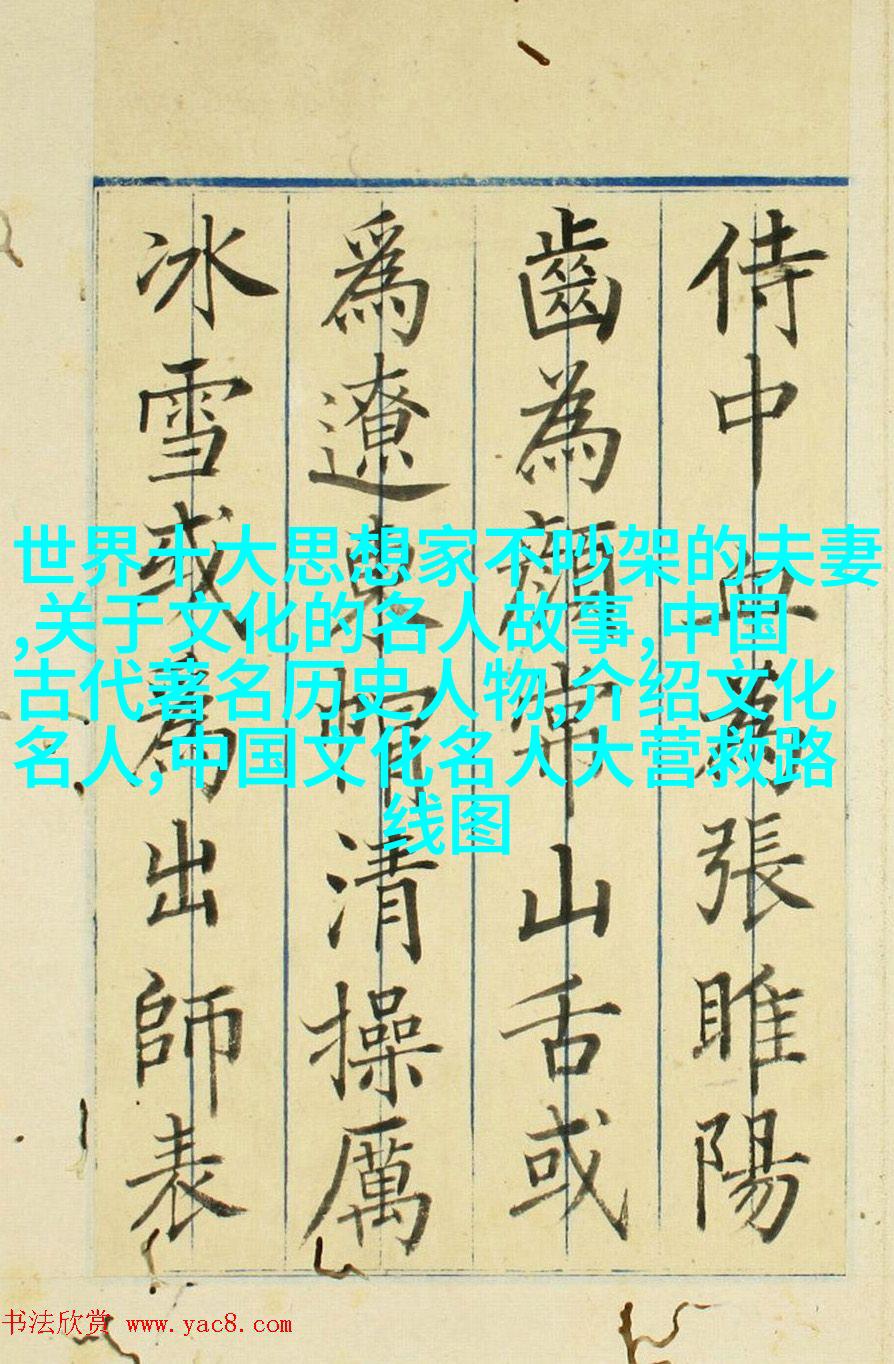 侍中血為張睢陽
齒為顏常山舌或
爲遼東帽清操厲
冰雪或為出師表
世界十大思想家不吵架的夫妻
,关于文化的名人故事,中国
古代著名历史人物,介绍文化
名人,中国文化名人大营救路
线图
书法欣赏 www.yac8.com